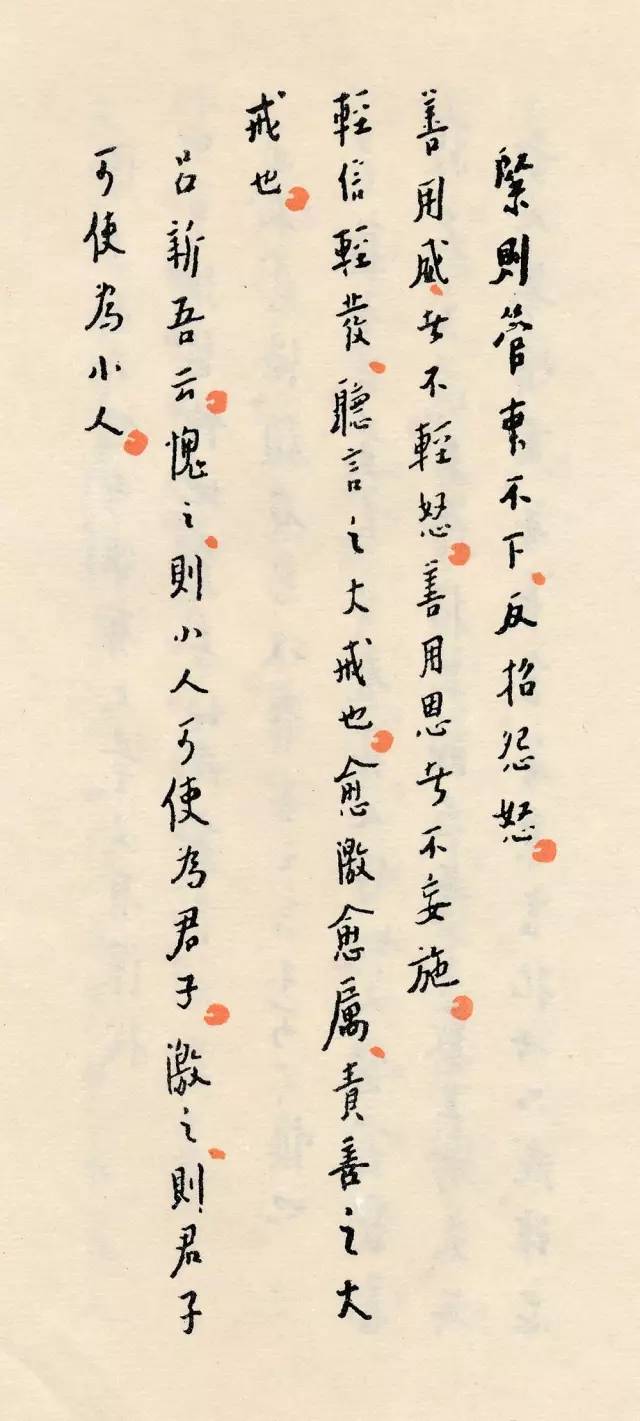 緊則管束不下反招怨怒
善用威者不輕怒善用恩者不妄施
輕信輕發聽言之大戒也愈激愈厲責善之大
戒也
呂新吾云愧之則小人可使為君子激之則君子
可使為小人